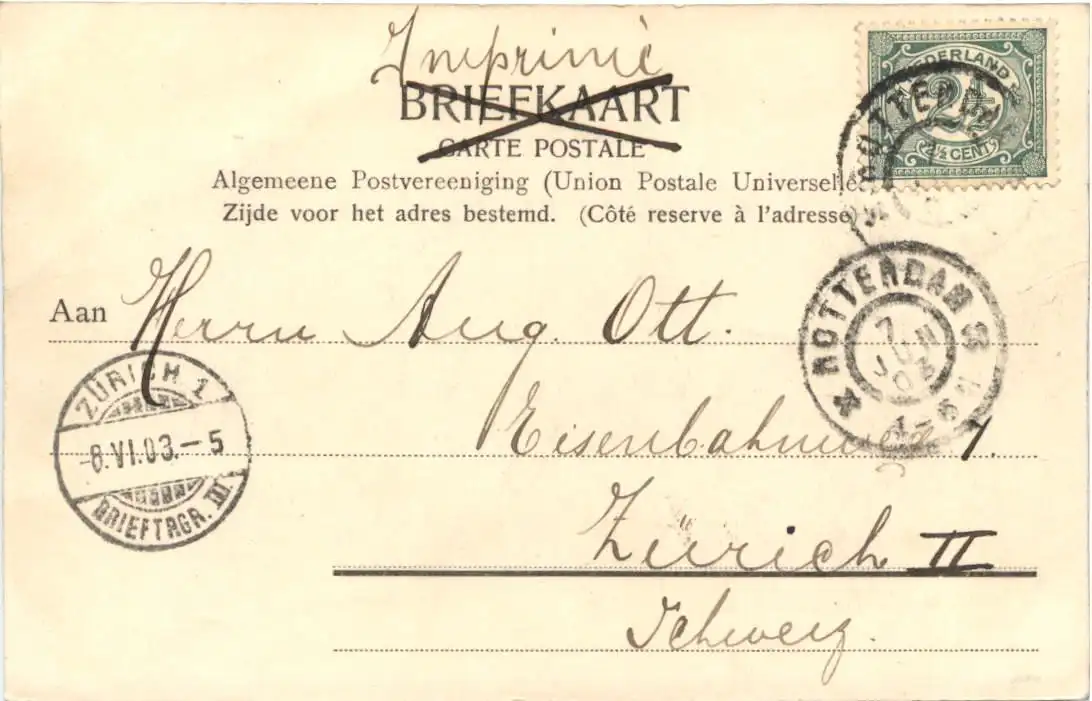 Imprimé
BRIEFKAART
CARTE POSTALE
Algemeene Postvereeniging (Union Postale Universelle)
Zijde voor het adres bestemd. (Côté reserve à l'adresse)
NEDERLAND
2½
2½ CENT
ROTTERDAM
Aan Herrn Aug. Ott.
ROTTERDAM
7 JUN 03
ZÜRICH 1
-8.VI.03.-5
BRIEFTRGR. III.
Eisenbahnweg 1.
Zürich II
Schweiz.